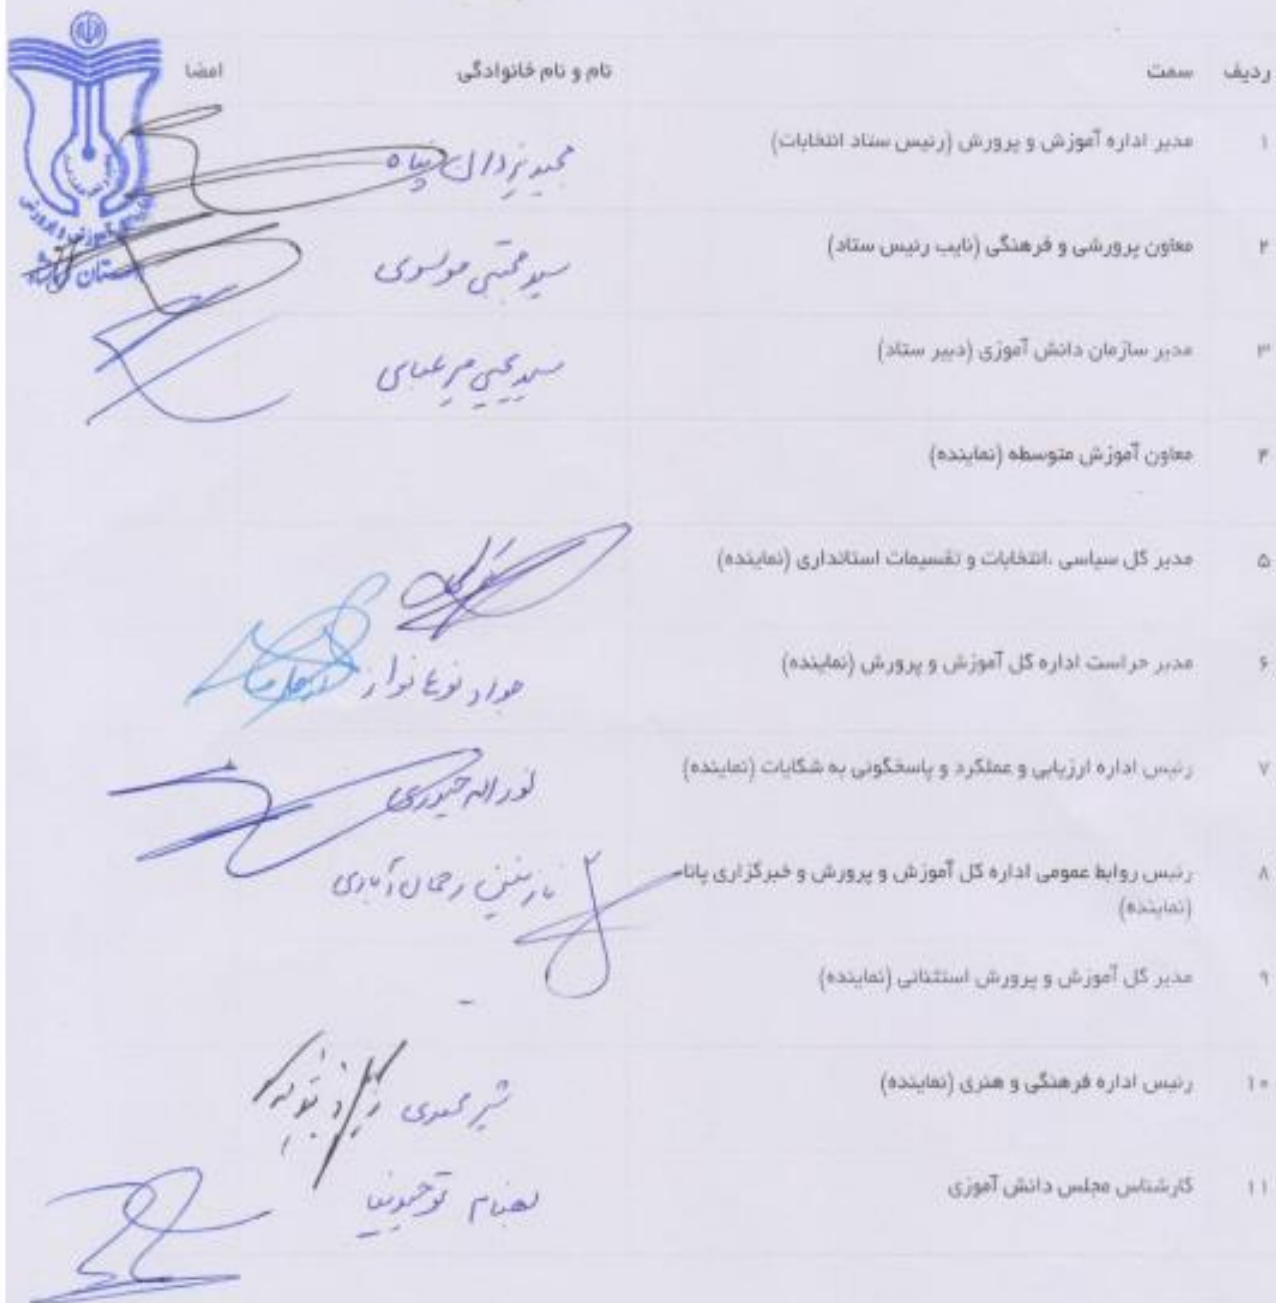 ردیف سمت نام و نام خانوادگی امضا
۱ مدیر اداره آموزش و پرورش (رئیس ستاد انتخابات) مجید یزدان پناه
۲ معاون پرورشی و فرهنگی (نایب رئیس ستاد) سید مجتبی موسوی
۳ مدیر سازمان دانش آموزی (دبیر ستاد) سید یحیی میرعباسی
۴ معاون آموزش متوسطه (نماینده)
۵ مدیر کل سیاسی ،انتخابات و تقسیمات استانداری (نماینده)
۶ مدیر حراست اداره کل آموزش و پرورش (نماینده) جواد
۷ رئیس اداره ارزیابی و عملکرد و پاسخگونی به شکایات (نماینده) نوراله حیدری
۸ رئیس روابط عمومی اداره کل آموزش و پرورش و خبرگزاری پانا نازنین رحمان آبادی
(نماینده)
۹ مدیر کل آموزش و پرورش استثنائی (نماینده) -
۱۰ رئیس اداره فرهنگی و هنری (نماینده) شیرمحمدی
۱۱ کارشناس مجلس دانش آموزی بهنام توحیدنیا